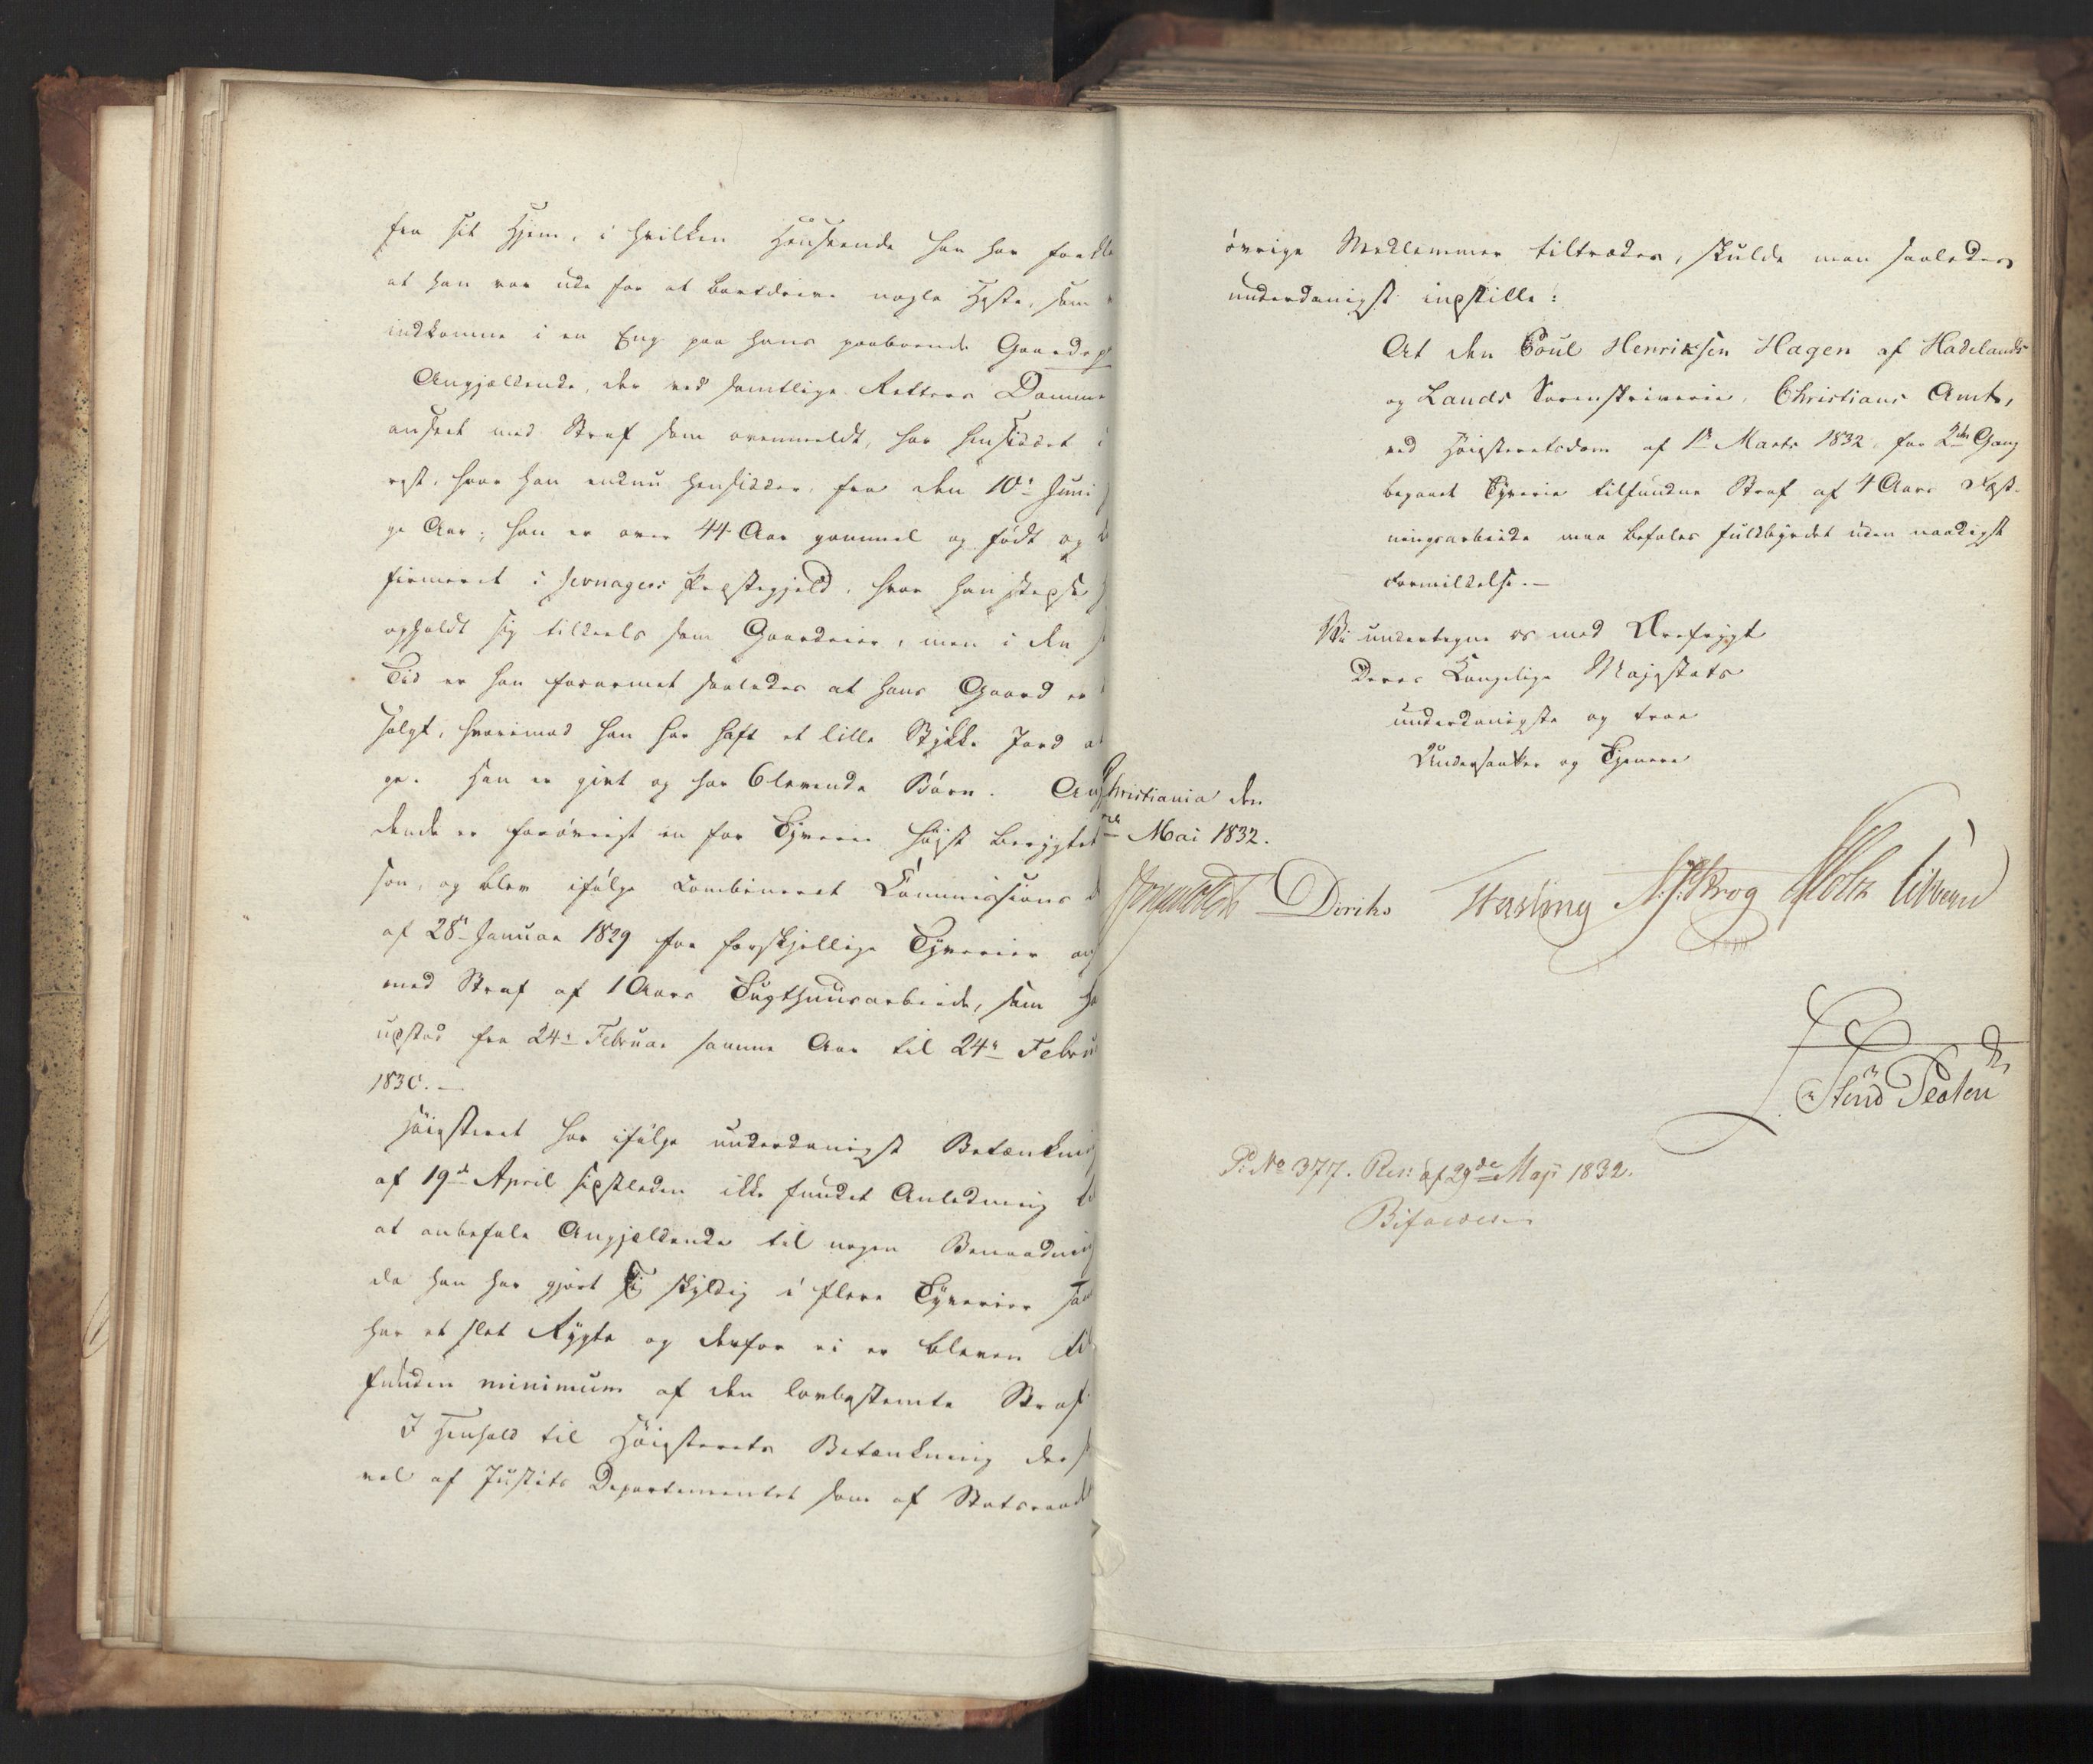 fra sit Hjem, i hvilken Henseende han har forkla
at han var ude for at bortdrive nogle Heste, som
indkomne i en Eng paa hans paaboende Gaardsp
Angjældende, der ved samtlige Retters Domme
anseet med Straf som ovenmeldt, har hensiddet i
rest, hvor han endnu hensidder, fra den 10de Juni
ge Aar; han er over 44 Aar gammel og födt og
firmeret i Jevnagers Præstegjeld, hvor han stedse
opholdt sig tildeels som Gaardeier, men i den
Tid er han forarmet saaledes at hans Gaard er
solgt, hvorimod han har haft et lille Stykke Jord at
ge. Han er givt og har 6 levende Börn. Angj
dende er forövrigt en for Tyverie höist berygtet
son, og blev ifölge combineret Commissions d
af 28de Januar 1829 for forskjellige Tyverier an
med Straf af 1 Aars Tugthuusarbeide, som ha
udstod fra 24de Februar samme Aar til 24de Febru
1830. —
Höiesteret har ifölge underdanigst Betænkning
af 19de April sidstleden ikke fundet Anledning til
at anbefale Angjeldende til nogen Benaadning
da han har gjort sig skyldig i flere Tyverier samt
har et slet Rygte og derfor ei er bleven til
funden minimum af den lovbestemte Straf.
I Henhold til Höiesterets Betænkning der s
vel af Justits Departementet som af Statsraadet
övrige Medlemmer tiltrædes, skulde man saaledes
underdanigst indstille:
At den Poul Henriksen Hagen af Hadelands
og Lands Sorenskriverie, Christians Amt,
ved Höiesteretsdom af 1ste Marts 1832 for 2den Gang
begaaet Tyverie tilfundne Straf af 4 Aars Fæst-
ningsarbeide maa befales fuldbyrdet uden naadigst
Formildelse. —
Vi undertegne os med Ærefrygt
Deres Kongelige Majestæts
underdanigste og troe
Undersaatter og Tjenere
Christiania den
Mai 1832.
Diriks Hersleng N. J. Krog Holst Vibe
P: No 377. Res: af 29de Maji 1832.
Bifaldes